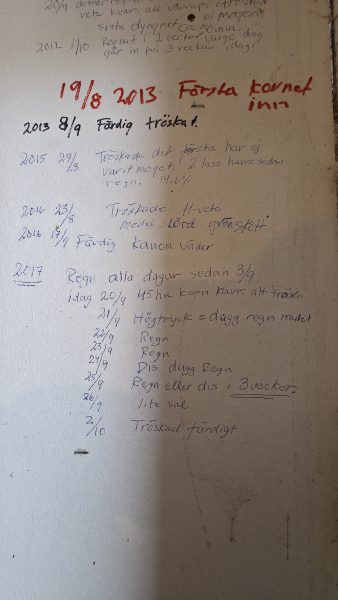 vete kvar att
sista dygnet ca 50 mm.
2012 1/10 Regnat i 2 veckor varje dag
går in på 3 veckan idag
19/8 2013 Första kornet
inn
2013 8/9 Färdig tröskat.
2015 29/8 Tröskade det första har ej
varit moget, 2 lass havre sedan
regn, 14.6%
2016 23/8 Tröskade H-vete
2016 17/9 Färdig Kanon väder
2017 Regn alla dagar sedan 3/9
idag 20/9 45 ha korn kvar. att tröska
21/9 Högtryck = dagg regn mulet
22/9 Regn
23/9 Regn
24/9 Dis dugg Regn
25/9 Regn eller dis i 3 veckor
26/9 lite sol
2/10 Tröskat färdigt